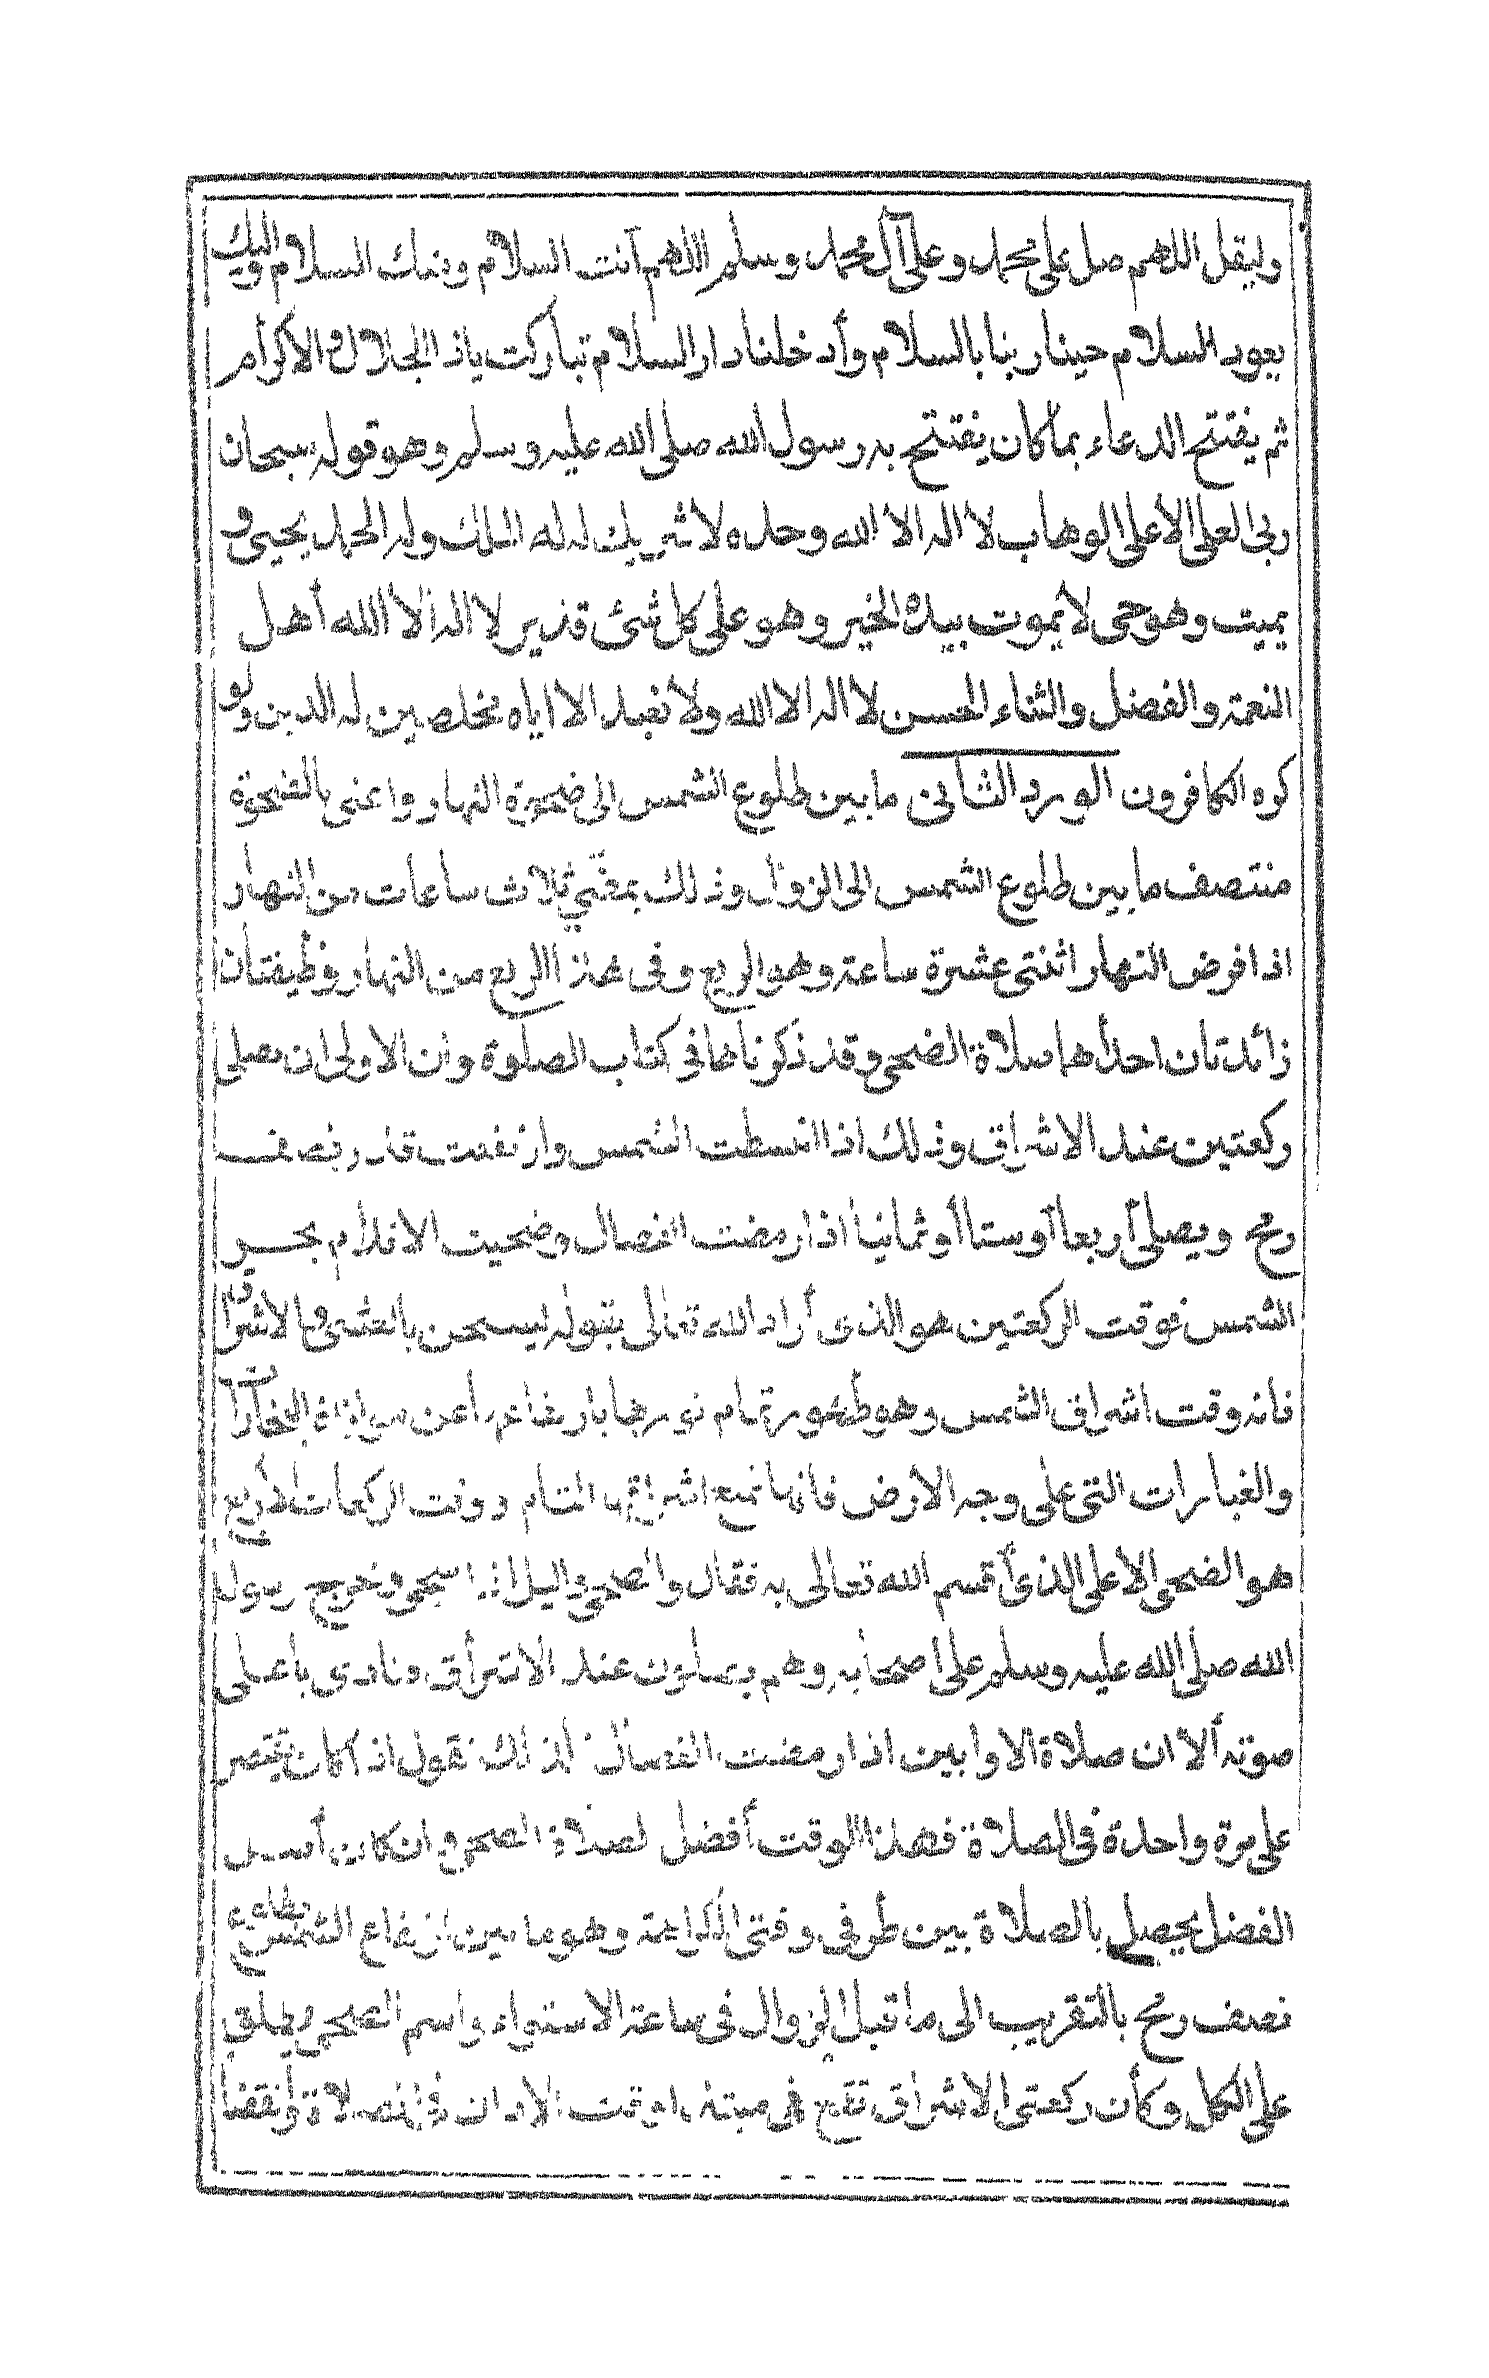 وليقل اللهم صل على محمد وعلى آل محمد وسلم اللهم أنت السلام ومنك السلام واليك
يعود السلام حينا ربنا بالسلام وأدخلنا دار السلام تباركت ياذا الجلال والاكرأم
ثم يفتتح الدعاء بما كان يفتتح به رسول الله صلى الله عليه وسلم وهو قوله سبحان
ربى العلى الأعلى الوهاب لا اله الا الله وحده لا شريك له له الملك وله الحمد يحيى و
يميت وهو حى لا يموت بيده الخير وهو على كل شئ قدير لا اله الا الله أهل
النعمة والفضل والثناء الحسن لا اله الا الله ولا نعبد الا اياه مخلصين له الدين ولو
كره الكافرون الورد الثانى ما بين طلوع الشمس الى ضحوة النهار واعنى بالضحوة
منتصف ما بين طلوع الشمس الى الزوال وذلك بمضي ثلاث ساعات من النهار
اذا فرض النهار اثنتى عشرة ساعة وهو الربع وفى هذا الربع من النهار وظيفتان
زائدتان احداهما صلاة الضحى وقد ذكرناها فى كتاب الصلوة وان الاولى ان يصلى
ركعتين عند الاشراق وذلك اذا انبسطت الشمس وارتفعت قدر نصف
رمح ويصلى أربعا أوستا أوثمانيا اذا رمضت الفصال وضحيت الاقدام بحر
الشمس فوقت الركعتين هو الذى أراد الله تعالى بقوله يسبحن بالعشى والاشراق
فانه وقت اشراق الشمس وهو ظهور تمام نورها بارتفاعها عن موازاة البخارات
والغبارات التى على وجه الارض فانها تمنع اشراقها التام ووقت الركعات الأربع
هو الضحى الأعلى الذى أقسم الله تعالى به فقال والضحى والليل اذا سجى وخرج رسول
الله صلى الله عليه وسلم على اصحابه وهم يصلون عند الاشراق فنادى بأعلى
صوته ألا ان صلاة الاوابين اذا رمضت الفصال فلذلك نقول اذا كان يقتصر
على مرة واحدة فى الصلاة فهذا الوقت أفضل لصلاة الضحى وان كان أصل
الفضل يحصل بالصلاة بين طرفى وقتى الكراهة وهو ما بين ارتفاع الشمس بطلوع
نصف رمح بالتقريب الى ما قبل الزوال فى ساعة الاستواء واسم الضحى ينطلق
على الكل وكأن ركعتى الاشراق تقع فى مبتدا وقت الاذن فى الصلاة وانقضا